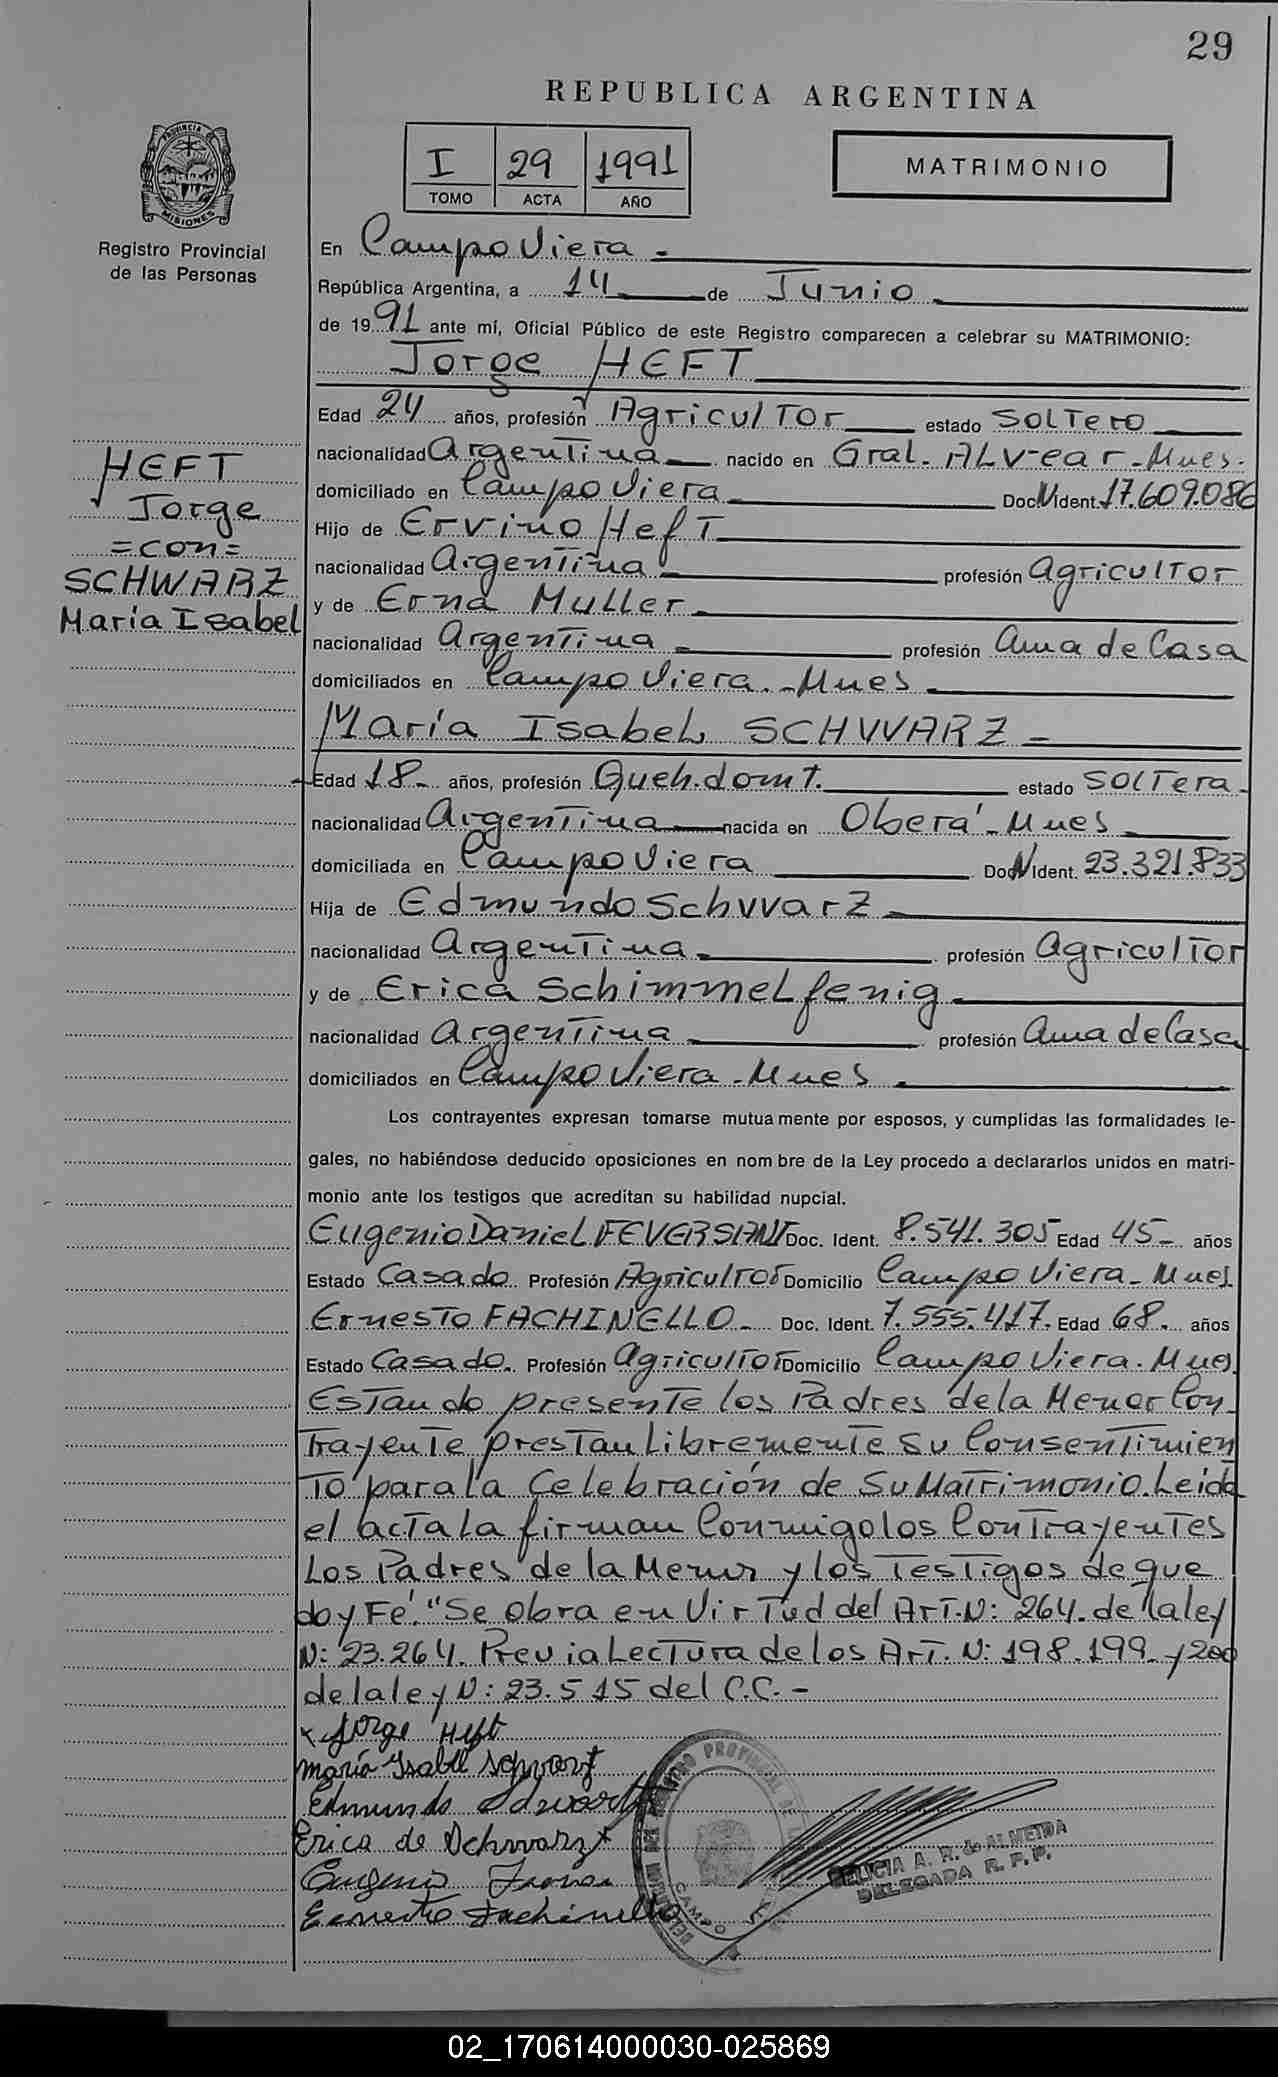 29
REPUBLICA ARGENTINA
I 29 1991
TOMO ACTA AÑO
MATRIMONIO
PROVINCIA DE
MISIONES
Registro Provincial
de las Personas
En Campo Viera.-
República Argentina, a 14 de Junio
de 1991 ante mí, Oficial Público de este Registro comparecen a celebrar su MATRIMONIO:
Jorge HEFT
Edad 24 años, profesión Agricultor estado Soltero
nacionalidad Argentina nacido en Gral. ALvear-Mnes.
domiciliado en Campo Viera Doc.N Ident. 17.609.086
Hijo de Ervino Heft
nacionalidad Argentina profesión Agricultor
y de Erna Muller
nacionalidad Argentina profesión Ama de Casa
domiciliados en Campo Viera.-Mnes
HEFT
Jorge
=con=
SCHWARZ
María Isabel
María Isabel SCHWARZ-
Edad 18- años, profesión Queh.domt. estado Soltera
nacionalidad Argentina nacida en Oberá-Mnes
domiciliada en Campo Viera Doc.N Ident. 23.321.833
Hija de Edmundo Schwarz
nacionalidad Argentina profesión Agricultor
y de Erica Schimmelfenig
nacionalidad Argentina profesión Ama de Casa
domiciliados en Campo Viera-Mnes
Los contrayentes expresan tomarse mutuamente por esposos, y cumplidas las formalidades le-
gales, no habiéndose deducido oposiciones en nombre de la Ley procedo a declararlos unidos en matri-
monio ante los testigos que acreditan su habilidad nupcial.
Eugenio Daniel Doc. Ident. 8.541.305 Edad 45- años
Estado Casado Profesión Agricultor Domicilio Campo Viera-Mnes
Ernesto FACHINELLO- Doc. Ident. 7.555.417. Edad 68. años
Estado Casado. Profesión Agricultor Domicilio Campo Viera.Mnes.
Estando presente los Padres de la Menor Con-
trayente prestan Libremente su Consentimien
to para la Celebración de Su Matrimonio. Leida
el acta La firman Conmigo los Contrayentes
Los Padres de la Menor y los Testigos de que
doy Fé. "Se obra en Virtud del Art.N: 264. de la ley
N: 23.264. Previa Lectura de los Art. N: 198.199. y 200
de la ley N: 23.515 del C.C.-
x Jorge Heft
María Isabel Schwarz
Edmundo Schwarz
Erica de Schwarz
Eugenio
Ernesto Fachinello
FELICIA A. R. de ALMEIDA
DELEGADA R. P. P.
02_170614000030-025869